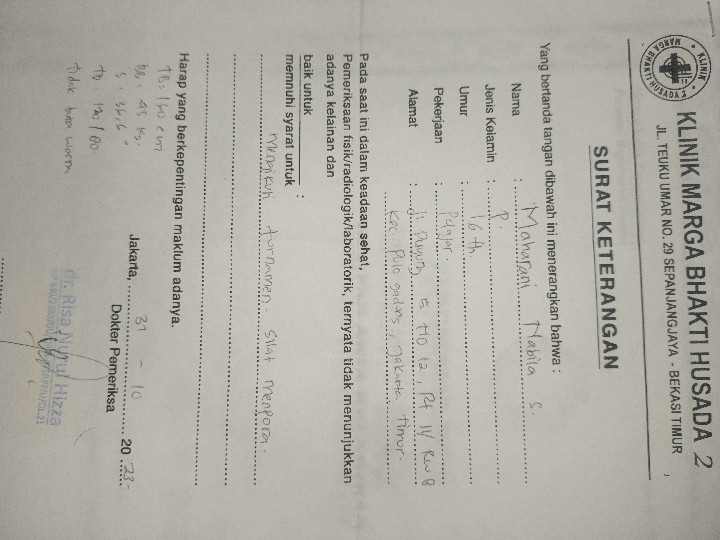 KLINIK
MARGA BHAKTI HUSADA 2
KLINIK MARGA BHAKTI HUSADA 2
JL. TEUKU UMAR NO. 29 SEPANJANGJAYA - BEKASI TIMUR
SURAT KETERANGAN
Yang bertanda tangan dibawah ini menerangkan bahwa :
Nama : Maharani Nabila S.
Jenis Kelamin : P.
Umur : 16 th
Pekerjaan : Pelajar.
Alamat : Jl. no 12, Rt 11/ Rw 8
Kec. Pulo gadung, Jakarta Timur.
Pada saat ini dalam keadaan sehat,
Pemeriksaan fisik/radiologik/laboratorik, ternyata tidak menunjukkan
adanya kelainan dan
baik untuk :
memnuhi syarat untuk
mengikuti turnamen silat menpora.
Harap yang berkepentingan maklum adanya.
TB = 160 cm
BB = 45 kg.
S = 36,6 °
Jakarta, 31 - 10 20 23-
TD = 121/80
Dokter Pemeriksa
Tidak buta warna
dr. Risa Nurul Hizza